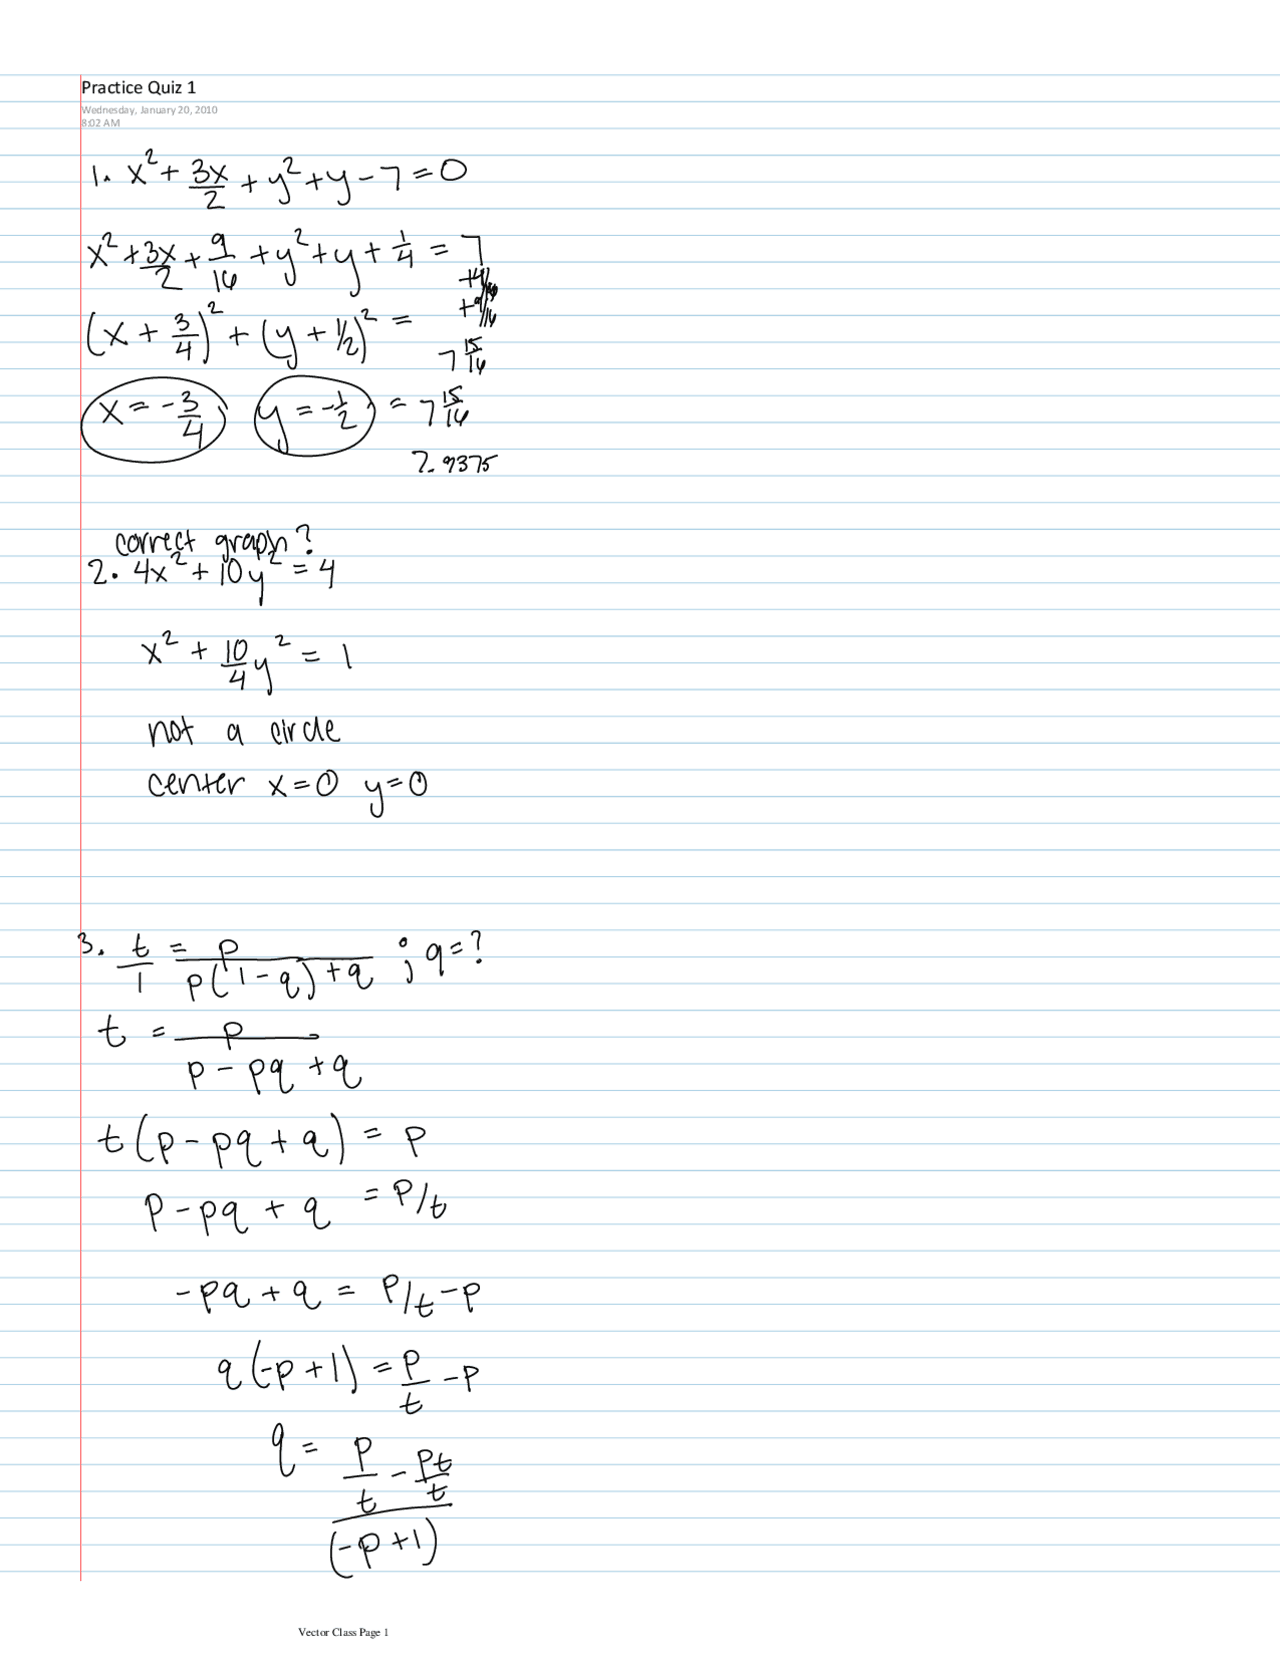 Practice Quiz 1
Wednesday, January 20, 2010
8:02 AM
1. x² + 3x/2 + y² + y - 7 = 0
x² + 3x/2 + 9/16 + y² + y + 1/4 = 7
+9/16
(x + 3/4)² + (y + 1/2)² =
7 15/16
x = -3/4 y = -1/2 = 7 15/16
7.9375
correct graph?
2. 4x² + 10y² = 4
x² + 10/4 y² = 1
not a circle
center x=0 y=0
3. t/1 = p/(p(1-q)+q) ; q=?
t = p/(p - pq + q)
t(p - pq + q) = p
p - pq + q = p/t
-pq + q = p/t - p
q(-p+1) = p/t - p
q = (p/t - pt/t)/(-p+1)
Vector Class Page 1